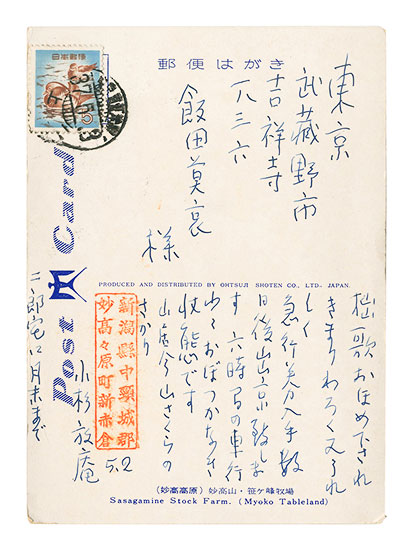 郵便はがき
日本郵便
東京
武蔵野市
吉祥寺
一八三六
飯田莫哀
様
Post Card
PRODUCED AND DISTRIBUTED BY OHTSUJI SHOTEN CO., LTD. JAPAN.
拙歌おほめ下され
急行券入手数
日後山出京致しま
す 六時間の車行
少々おぼつかなき
収態です
山荘今山さくらの
さかり
新潟縣中頸城郡
妙高々原町新赤倉
5.2
小杉放庵
二郎宅に月末まで
(妙高高原) 妙高山・笹ヶ峰牧場
Sasagamine Stock Farm. (Myoko Tableland)